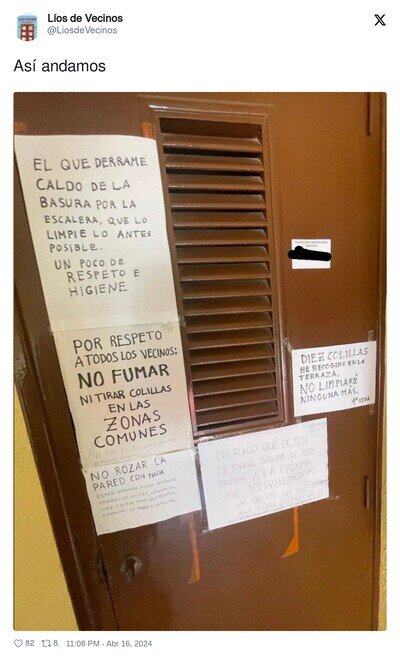 Líos de Vecinos
@LiosdeVecinos
Así andamos
EL QUE DERRAME
CALDO DE LA
BASURA POR LA
ESCALERA, QUE LO
LIMPIE LO ANTES
POSIBLE.
UN POCO DE
RESPETO E
HIGIENE
POR RESPETO
A TODOS LOS VECINOS:
NO FUMAR
NI TIRAR COLILLAS
EN LAS
ZONAS
COMUNES
NO ROZAR LA
PARED CON NADA
DIEZ COLILLAS
HE RECOGIDO EN LA
TERRAZA.
NO LIMPIARÉ
NINGUNA MÁS.
1º IZDA
LES RUEGO QUE DEJEN
DE TIRAR BASURA A LOS
PATIOS, A LA PRÓXIMA
SE TOMARÁN MEDIDAS
LOS PATIOS NO SON
82
8
11:08 PM - Abr 16, 2024